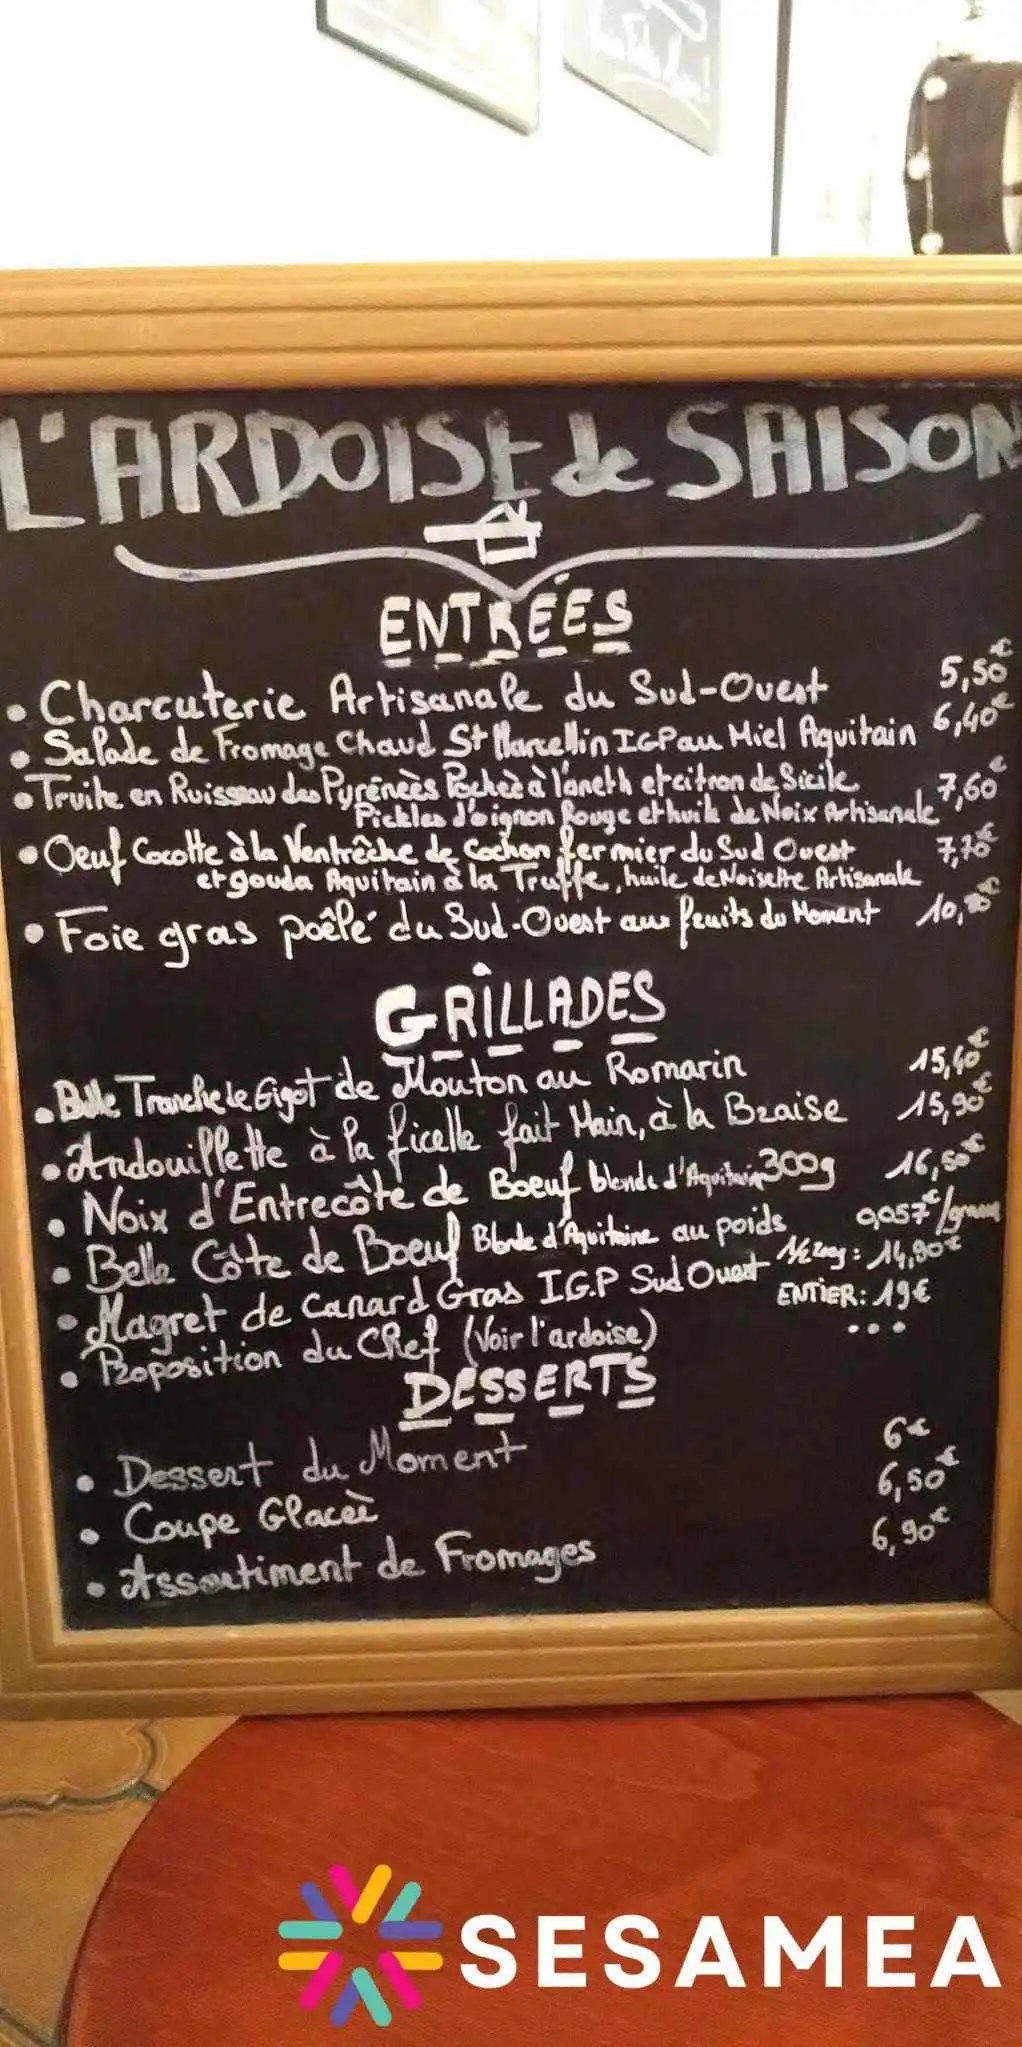 L'ARDOISE de SAISON
ENTRÉES
• Charcuterie Artisanale du Sud-Ouest 5,50€
• Salade de Fromage Chaud St Marcellin IGP au Miel Aquitain 6,40€
• Truite en Ruisseau des Pyrénèes Pochèè à l'aneth et citron de Sicile 7,60€
Pickles d'oignon Rouge et huile de Noix Artisanale
• Oeuf Cocotte à la Ventrêche de Cochon fermier du Sud Ouest 7,70€
et gouda Aquitain à la Truffe, huile de Noisette Artisanale
• Foie gras poêlé du Sud-Ouest aux fruits du Moment 10,70€
GRILLADES
• Belle Tranche de Gigot de Mouton au Romarin 15,40€
• Andouillette à la ficelle fait Main, à la Braise 15,90€
• Noix d'Entrecôte de Boeuf blonde d'Aquitaine 300g 16,50€
• Belle Côte de Boeuf Blonde d'Aquitaine au poids 0,057€/gramme
• Magret de Canard Gras IG.P Sud Ouest 1/2 200g: 14,90€
ENTIER: 19€
• Proposition du Chef (Voir l'ardoise) ...
DESSERTS
• Dessert du Moment 6€
• Coupe Glaceè 6,50€
• Assortiment de Fromages 6,90€
SESAMEA